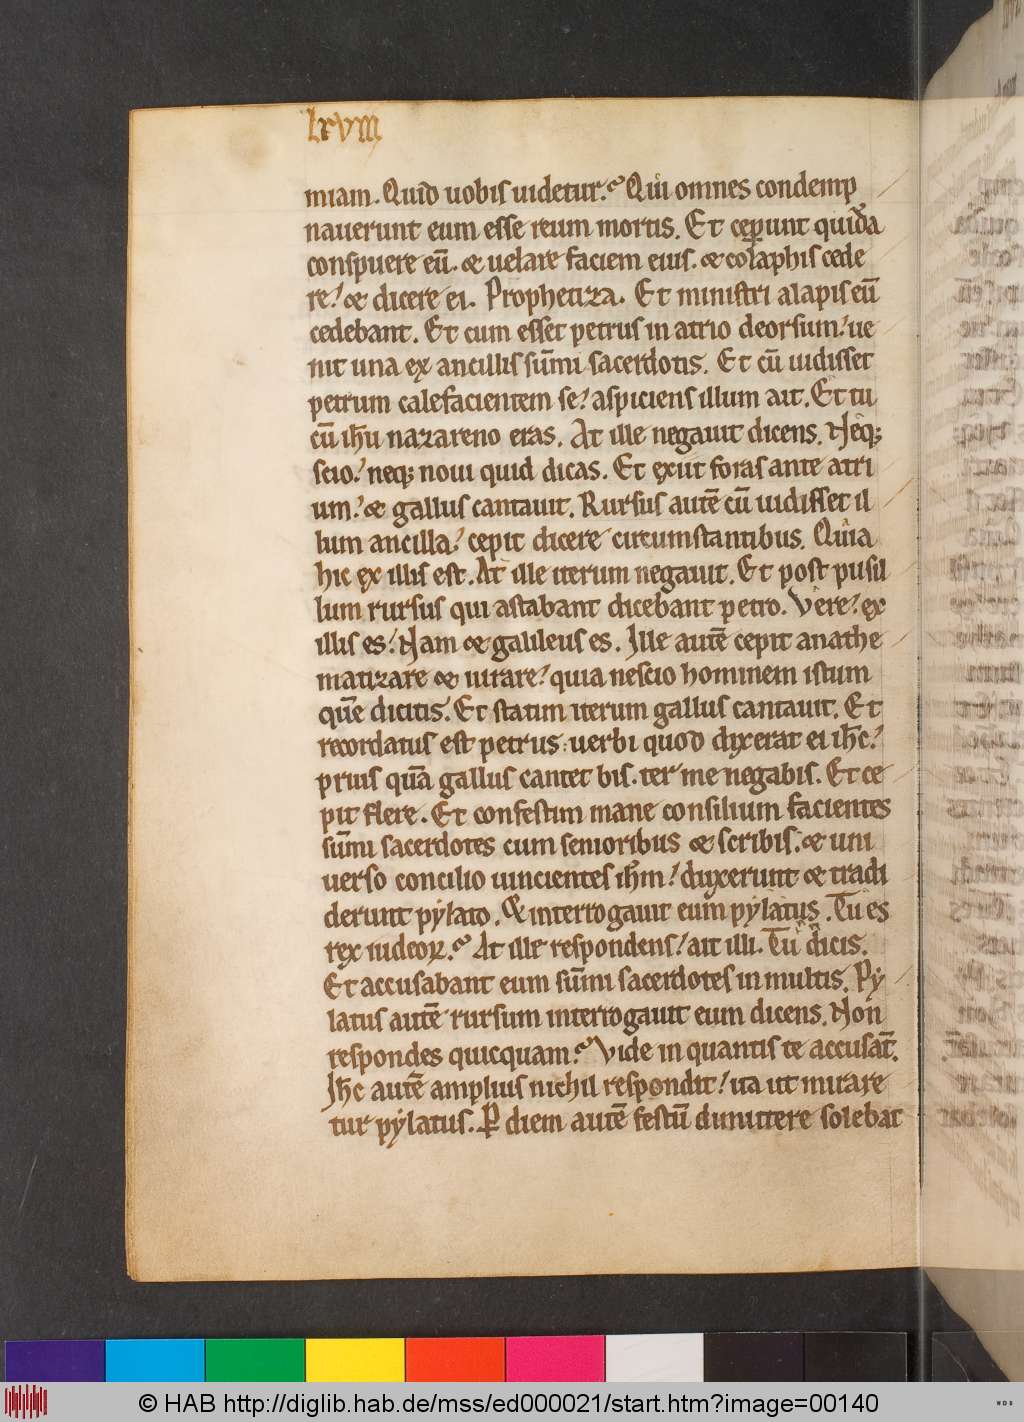 lxvııı
miam. Quid uobis uidetur? Qui omnes condemp
nauerunt eum esse reum mortis. Et ceperunt quidā
conspuere eū. & uelare faciem eius. & colaphis cede
re. & dicere ei. Prophetiza. Et ministri alapis eū
cedebant. Et cum esset petrus in atrio deorsum. ue
nit una ex ancillis sūmi sacerdotis. Et cū uidisset
petrum calefacientem se. aspiciens illum ait. Et tu
cū ihu nazareno eras. At ille negauit dicens. Neq;
scio. neq; noui quid dicas. Et exiit foras ante atri
um. & gallus cantauit. Rursus autē cū uidisset il
lum ancilla. cepit dicere circumstantibus. Quia
hic ex illis est. At ille iterum negauit. Et post pusil
lum rursus qui astabant dicebant petro. Vere. ex
illis es. Nam & galileus es. Ille autē cepit anathe
matizare & iurare. quia nescio hominem istum
quē dicitis. Et statim iterum gallus cantauit. Et
recordatus est petrus uerbi quod dixerat ei ihc.
prius quā gallus cantet bis. ter me negabis. Et ce
pit flere. Et confestim mane consilium facientes
sūmi sacerdotes cum senioribus & scribis. & uni
uerso concilio uincientes ihm. duxerunt & tradi
derunt pylato. & interrogauit eum pylatus. Tu es
rex iudeoꝝ? At ille respondens. ait illi. Tu dicis.
Et accusabant eum sūmi sacerdotes in multis. Py
latus autē rursum interrogauit eum dicens. Non
respondes quicquam? Vide in quantis te accusat̄.
Ihc autē amplius nichil respondit. ita ut mirare
tur pylatus. P̲ diem autē festū dimittere solebat
© HAB http://diglib.hab.de/mss/ed000021/start.htm?image=00140